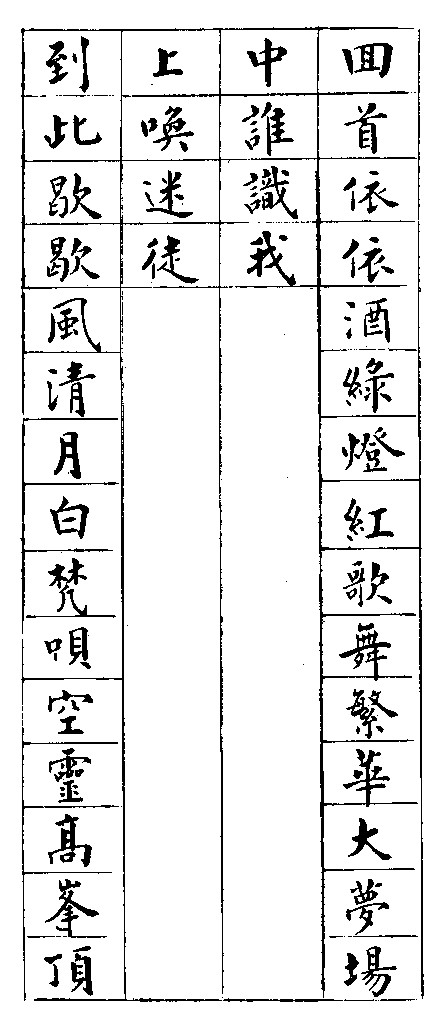 囬首依依酒綠燈紅歌舞繁華大夢場
中誰識我
上喚迷徒
到此歇歇風清月白梵唄空靈髙峯頂